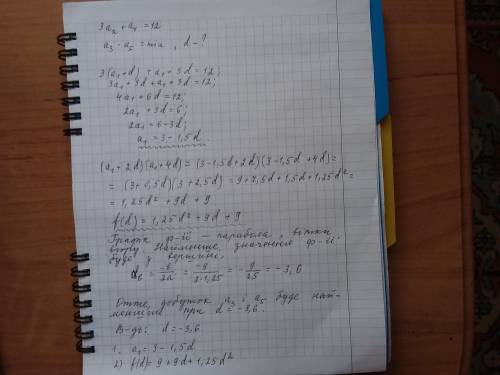 3a₂ + a₄ = 12
a₃ · a₅ = min , d - ?
3(a₁ + d) + a₁ + 3d = 12;
3a₁ + 3d + a₁ + 3d = 12;
4a₁ + 6d = 12;
2a₁ + 3d = 6;
2a₁ = 6 - 3d;
a₁ = 3 - 1,5d
(a₁ + 2d)(a₁ + 4d) = (3 - 1,5d + 2d)(3 - 1,5d + 4d) =
= (3 + 0,5d)(3 + 2,5d) = 9 + 7,5d + 1,5d + 1,25d² =
= 1,25d² + 9d + 9
f(d) = 1,25d² + 9d + 9
Графік ф-ії - парабола, вітки
вгору. Найменше значення ф-ії
буде у вершині.
d_в = -в/2a = -9/2·1,25 = -9/2,5 = -3,6
Отже, добуток a₃ і a₅ буде най-
меншим при d = -3,6.
В-дь: d = -3,6
1. a₁ = 3 - 1,5d
2) f(d) = 9 + 9d + 1,25d²